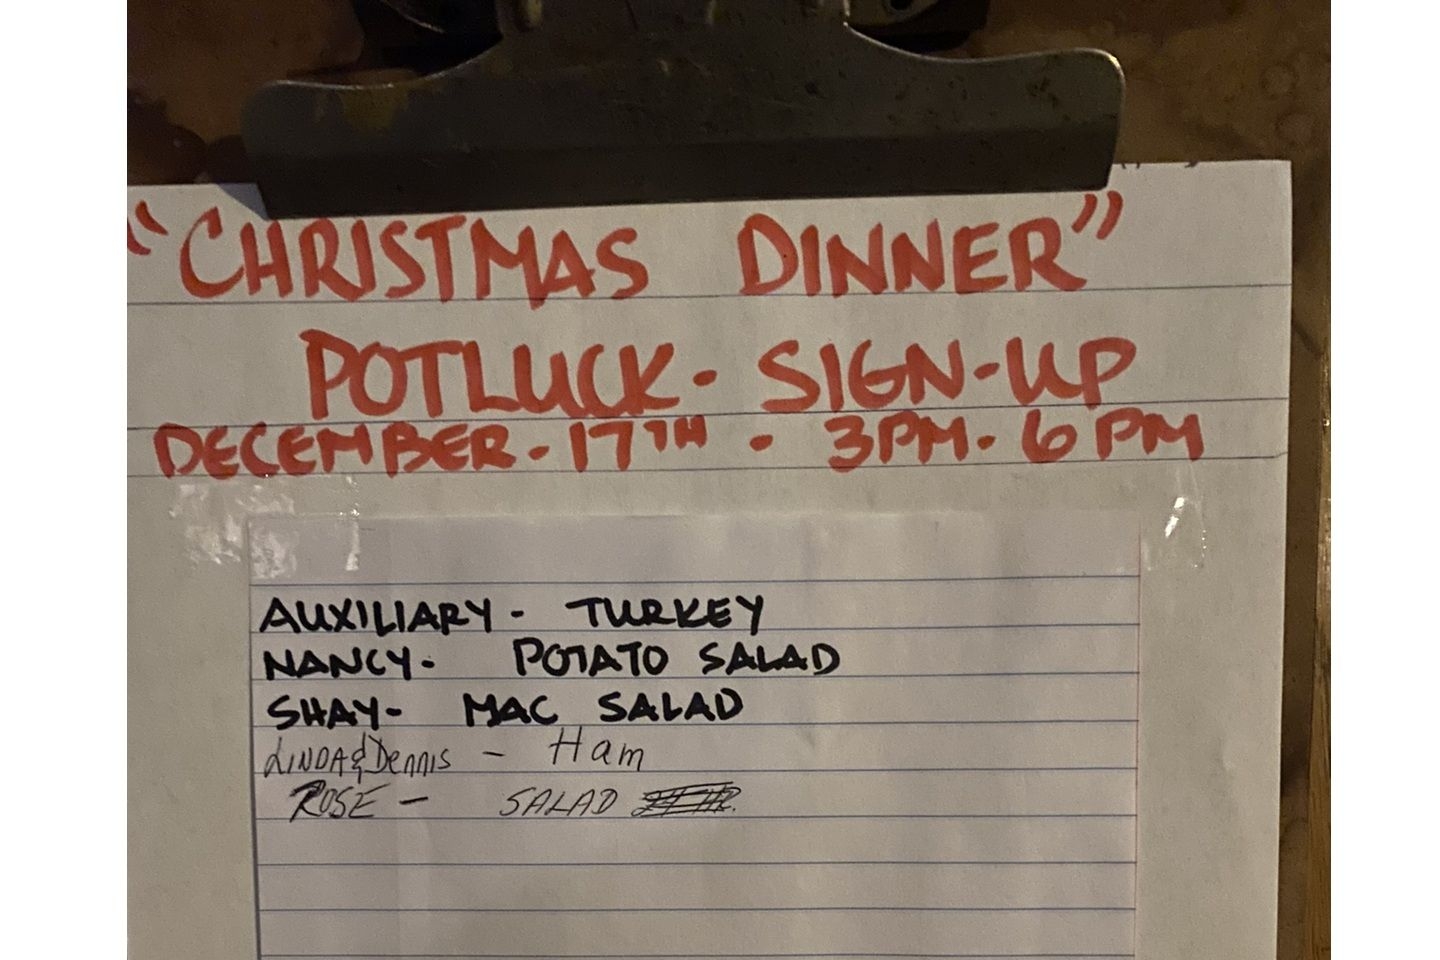 "CHRISTMAS DINNER"
POTLUCK - SIGN-UP
DECEMBER - 17TH - 3PM - 6PM
AUXILIARY - TURKEY
NANCY - POTATO SALAD
SHAY - MAC SALAD
LINDA & DENNIS - Ham
ROSE - SALAD